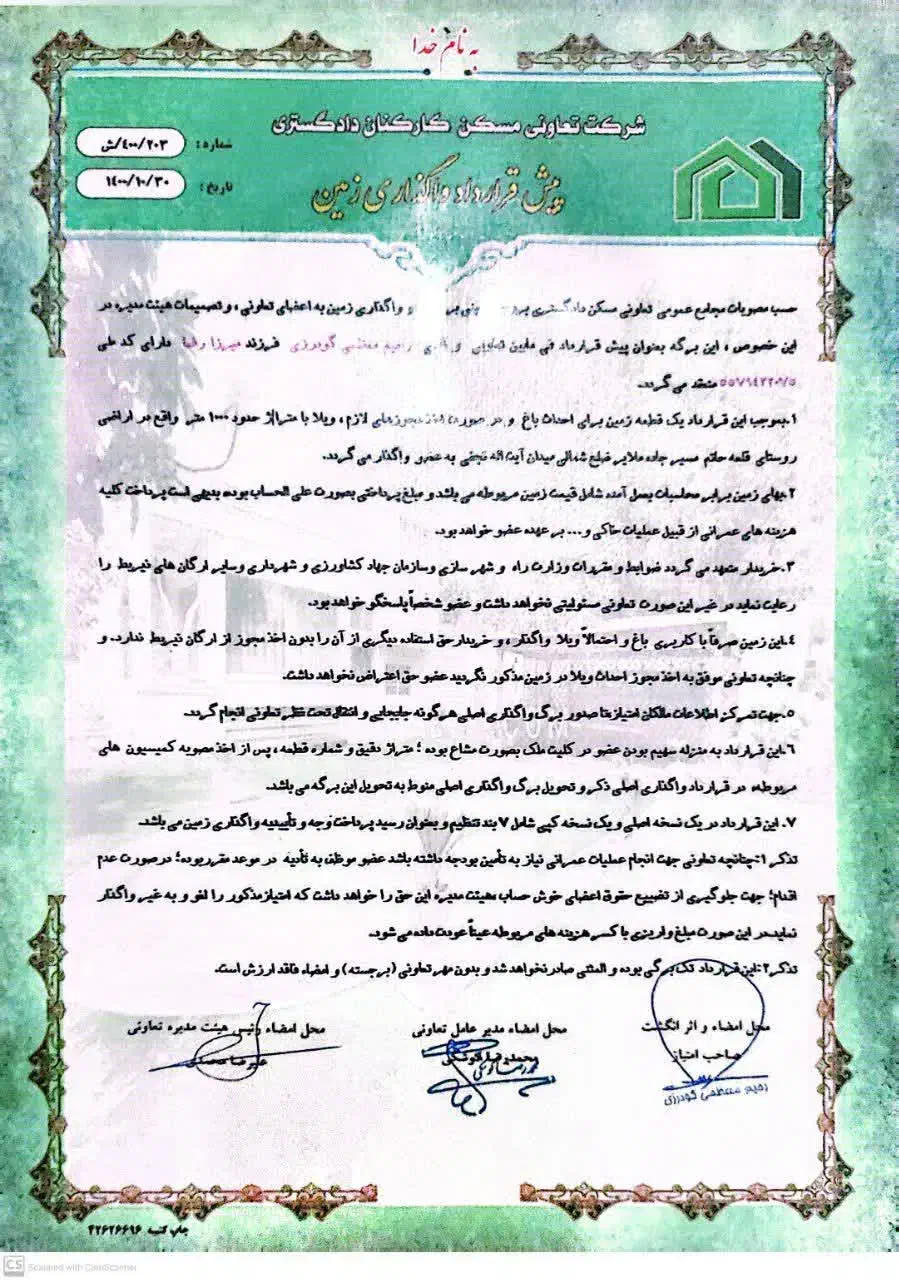 به نام خدا
شرکت تعاونی مسکن کارکنان دادگستری
شماره: ۴۰۰/۲۰۳/ش
پیش قرارداد واگذاری زمین
تاریخ: ۱۴۰۰/۱۰/۳۰
حسب مصوبات مجامع عمومی تعاونی مسکن دادگستری و واگذاری زمین به اعضای تعاونی، و تصمیمات هیئت مدیره در
این خصوص، این برگه بعنوان پیش قرارداد فی مابین تعاونی و رحیم معظمی گودرزی فرزند میرزا رضا دارای کد ملی
منعقد می گردد.
۱.بموجب این قرارداد یک قطعه زمین برای احداث باغ و در صورت اخذ مجوزهای لازم، ویلا با متراژ حدود ۱۰۰۰ متر واقع در اراضی
روستای قلعه حاتم مسیر جاده ملایر ضلع شمالی میدان آیت اله نجفی به عضو واگذار می گردد.
۲.بهای زمین برابر محاسبات بعمل آمده شامل قیمت زمین مربوطه می باشد و مبلغ پرداختی بصورت علی الحساب بوده بدیهی است پرداخت کلیه
هزینه های عمرانی از قبیل عملیات خاکی و... بر عهده عضو خواهد بود.
۳.خریدار متعهد می گردد ضوابط و مقررات وزارت راه و شهر سازی وسازمان جهاد کشاورزی و شهرداری وسایر ارگان های ذیربط را
رعایت نماید در غیر این صورت تعاونی مسئولیتی نخواهد داشت و عضو شخصاً پاسخگو خواهد بود.
۴.این زمین صرفاً با کاربری باغ و احتمالاً ویلا واگذار، و خریدار حق استفاده دیگری از آن را بدون اخذ مجوز از ارگان ذیربط ندارد. و
چنانچه تعاونی موفق به اخذ مجوز احداث ویلا در زمین مذکور نگردید عضو حق اعتراض نخواهد داشت.
۵.جهت تمرکز اطلاعات مالکان امتیاز تا صدور برگ واگذاری اصلی هرگونه جابجایی و انتقال تحت نظر تعاونی انجام گردد.
۶.این قرارداد به منزله سهیم بودن عضو در کلیت ملک بصورت مشاع بوده؛ متراژ دقیق و شماره قطعه، پس از اخذ مصوبه کمیسیون های
مربوطه، در قرارداد واگذاری اصلی ذکر و تحویل برگ واگذاری اصلی منوط به تحویل این برگه می باشد.
۷. این قرارداد در یک نسخه اصلی و یک نسخه کپی شامل ۷ بند تنظیم و بعنوان رسید پرداخت وجه و تأییدیه واگذاری زمین می باشد.
تذکر ۱:چنانچه تعاونی جهت انجام عملیات عمرانی نیاز به تأمین بودجه داشته باشد عضو موظف به تأدیه در موعد مقرر بوده؛ در صورت عدم
اقدام؛ جهت جلوگیری از تضییع حقوق اعضای خوش حساب، هیئت مدیره این حق را خواهد داشت که امتیاز مذکور را لغو و به غیر واگذار
نماید.در این صورت مبلغ واریزی با کسر هزینه های مربوطه عیناً عودت داده می شود.
تذکر۲:این قرارداد تک برگی بوده و المثنی صادر نخواهد شد و بدون مهر تعاونی (برجسته) و امضاء فاقد ارزش است.
محل امضاء و اثر انگشت
صاحب امتیاز
رحیم معظمی گودرزی
محل امضاء مدیر عامل تعاونی
محل امضاء رئیس هیئت مدیره تعاونی
علیرضا
چاپ کتیبه ۴۲۶۲۶۶۹۶
CS Scanned with CamScanner